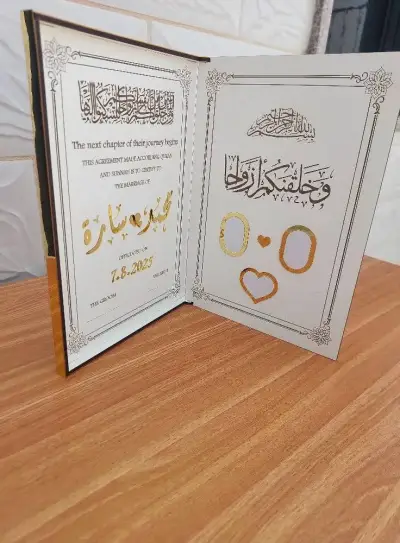 The next chapter of their journey begins
THIS AGREEMENT MADE ACCORDING QURAN
AND SUNNAH IS TO CERTIFY TO
THE MARRIAGE OF
سارة
7.8.2025
THE GROOM
بسم الله الرحمن الرحيم
وَخَلَقْنَكُمْ أَزْوَاجًا